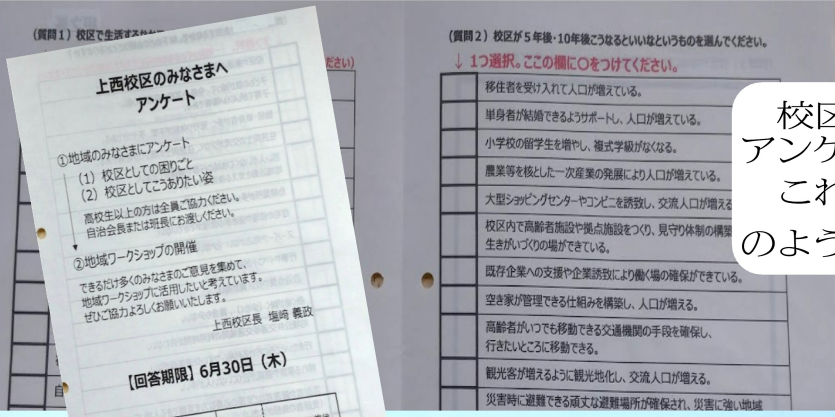 (質問1)校区で生活する
ださい)
上西校区のみなさまへ
アンケート
①地域のみなさまにアンケート
(1)校区としての困りごと
(2)校区としてこうありたい姿
高校生以上の方は全員ご協力ください。
自治会長または班長にお渡しください。
②地域ワークショップの開催
できるだけ多くのみなさまのご意見を集めて、
地域ワークショップに活用したいと考えています。
ぜひご協力よろしくお願いいたします。
上西校区長 塩﨑 義政
【回答期限】6月30日(木)
(質問2)校区が5年後・10年後こうなるといいなというものを選んでください。
↓ 1つ選択。ここの欄に〇をつけてください。
移住者を受け入れて人口が増えている。
単身者が結婚できるようサポートし、人口が増えている。
小学校の留学生を増やし、複式学級がなくなる。
農業等を核とした一次産業の発展により人口が増えている。
大型ショッピングセンターやコンビニを誘致し、交流人口が増える
校区内で高齢者施設や拠点施設をつくり、見守り体制の構築
生きがいづくりの場ができている。
既存企業への支援や企業誘致により働く場の確保ができている。
空き家が管理できる仕組みを構築し、人口が増える。
高齢者がいつでも移動できる交通機関の手段を確保し、
行きたいところに移動できる。
観光客が増えるように観光地化し、交流人口が増える。
災害時に避難できる頑丈な避難場所が確保され、災害に強い地域
校区
アンケ
これ
のよう